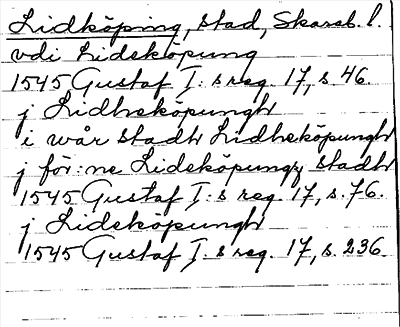 Lidköping, stad, Skarab. l.
vdi Lideköpung
1545 Gustaf I:s reg. 17, s. 46.
j Lidheköpungh
i wår stadh Lidheköpungh
j för:ne Lideköpungz stadh
1545 Gustaf I:s reg. 17, s. 76.
j Lideköpungh
1545 Gustaf I:s reg. 17, s. 236.